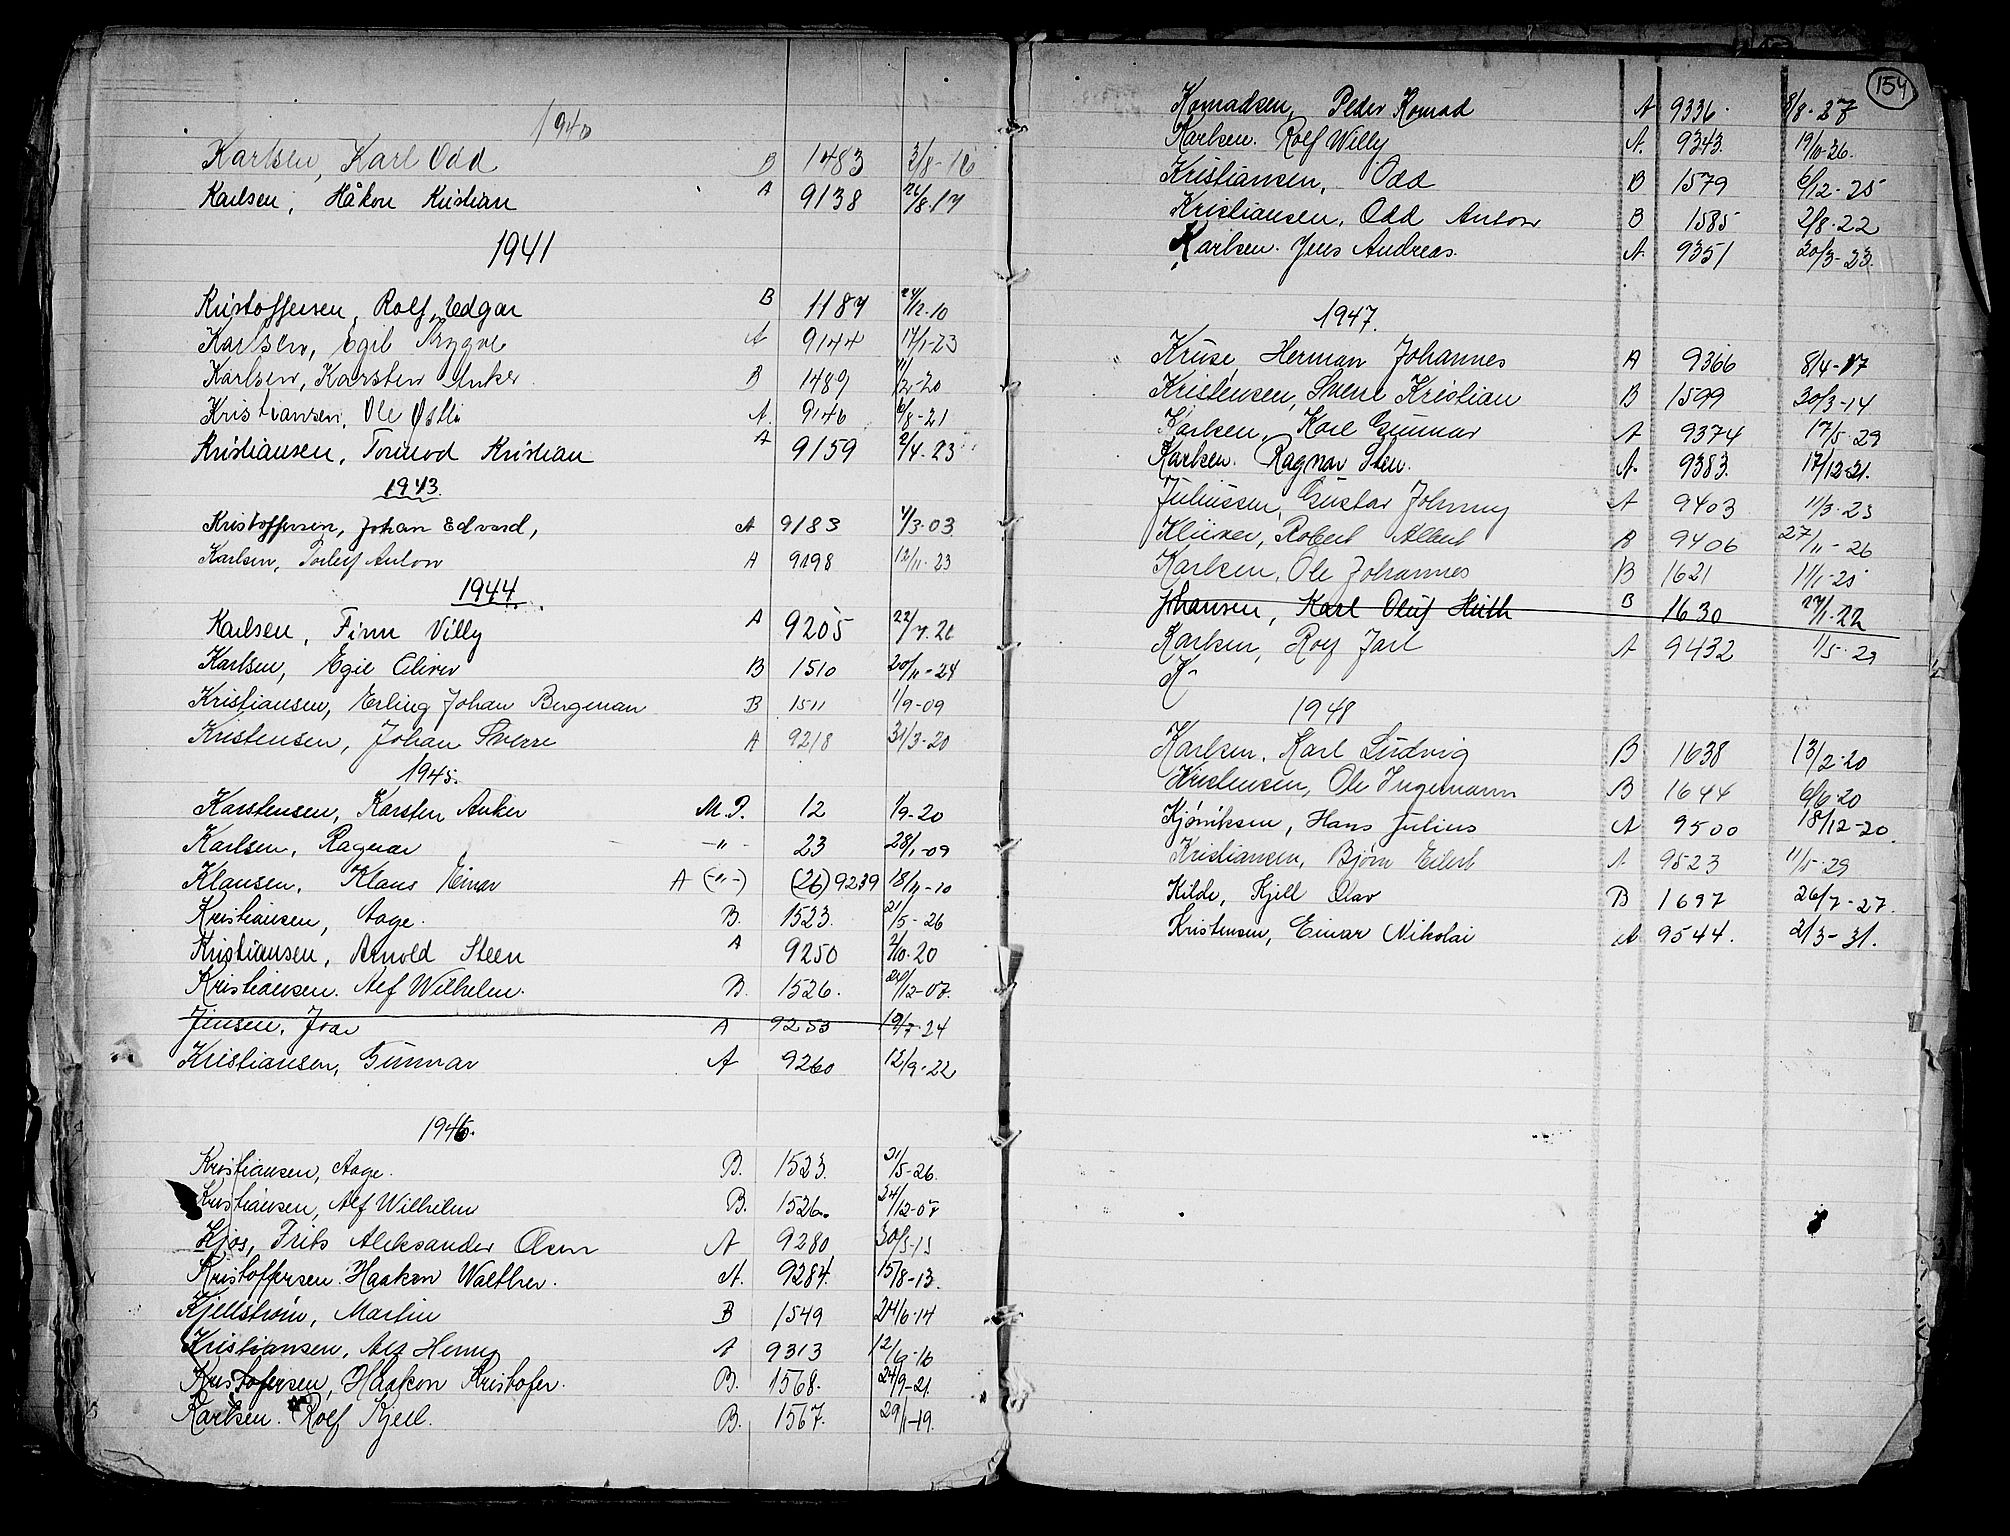 1940
Karlsen, Karl Odd B 1483 3/8-16
Karlsen, Håkon Kristian A 9138 26/8.17
1941
Kristoffersen, Rolf Edgar B 1187 24/12-10
Karlsen, Egil Trygve A 9144 17/1-23
Karlsen, Karsten Anker. B 1489 -20
Kristiansen, Ole Østli A. 9146 6/8-21
Kristiansen, Tormod Kristian A 9159 2/4-23
1943.
Kristoffersen, Johan Edvard, A 9183 4/3.03
Karlsen, Torleif Anton A 9198 12/11.23
1944.
Karlsen, Finn Villy A 9205 22/7.26
Karlsen, Egil Oliver B 1510 20/11-24
Kristiansen, Erling Johan Bergman B 1511 1/9-09
Kristensen, Johan Sverre A 9218 31/3-20
1945.
Karstensen, Karsten Anker M.P. 12 1/9-20
Karlsen, Ragnar -"- 23 28/1-09
Klausen, Klaus Einar A (-"-) (26) 9239 18/11-10
Kristiansen, Aage. B. 1523. 21/5-26
Kristiansen, Arnold Steen A 9250 2/10.20
Kristiansen. Alf Wilhelm. B. 1526. 24/12-07.
Jensen, Ivar A 9253 19/7-24
Kristiansen, Gunnar A 9260 12/9-22
1946.
Kristiansen, Aage. B. 1523. 21/5-26.
Kristiansen, Alf Wilhelm B. 1526. 24/12-07
Kjøs, Frits Aleksander Olsen A 9280 30/5-15
Kristoffersen. Haakon Walther. A. 9284. 15/8-13.
Kjellstrøm, Martin B 1549 24/6-14
Kristiansen, Alf Henry A 9313 12/9-16
Kristofersen, Haakon Kristofer. B. 1568. 24/9-21.
Karlsen. Rolf Kjell. B. 1567. 29/1-19.
154
Konradsen, Peder Konrad A 9336. 8/8-27
Karlsen. Rolf Willy A. 9343. 19/10-26.
Kristiansen, Odd B 1579 6/12-25
Kristiansen, Odd Anton B 1585 2/8.22
Karlsen. Jens Andreas. A. 9351 20/3-23.
1947.
Kruse, Herman Johannes A 9366 8/4-17
Kristensen, Sverre Kristian B 1599 30/3-14
Karlsen, Karl Gunnar A 9374 17/5-29
Karlsen. Ragnar Sten. A. 9383. 17/12-21.
Juliussen, Gustav Johnny A 9403 11/3-23
Klüver, Robert Albert A 9406 27/11-26
Karlsen, Ole Johannes B 1621 11/1-25
Johansen, Karl Oluf Huth B 1630 27/1-22
Karlsen, Roy Jarl A 9432 1/5-29
K
1948
Karlsen, Karl Ludvig B 1638 13/2-20
Kristensen, Ole Ingemann B 1644 6/6-20
Kjøniksen, Hans Julius A 9500 18/12-20.
Kristiansen, Bjørn Eilert A 9523 11/5-29
Kilde, Kjell Olav B 1697 26/7-27.
Kristensen, Einar Nikolai A 9544. 2/3-31.